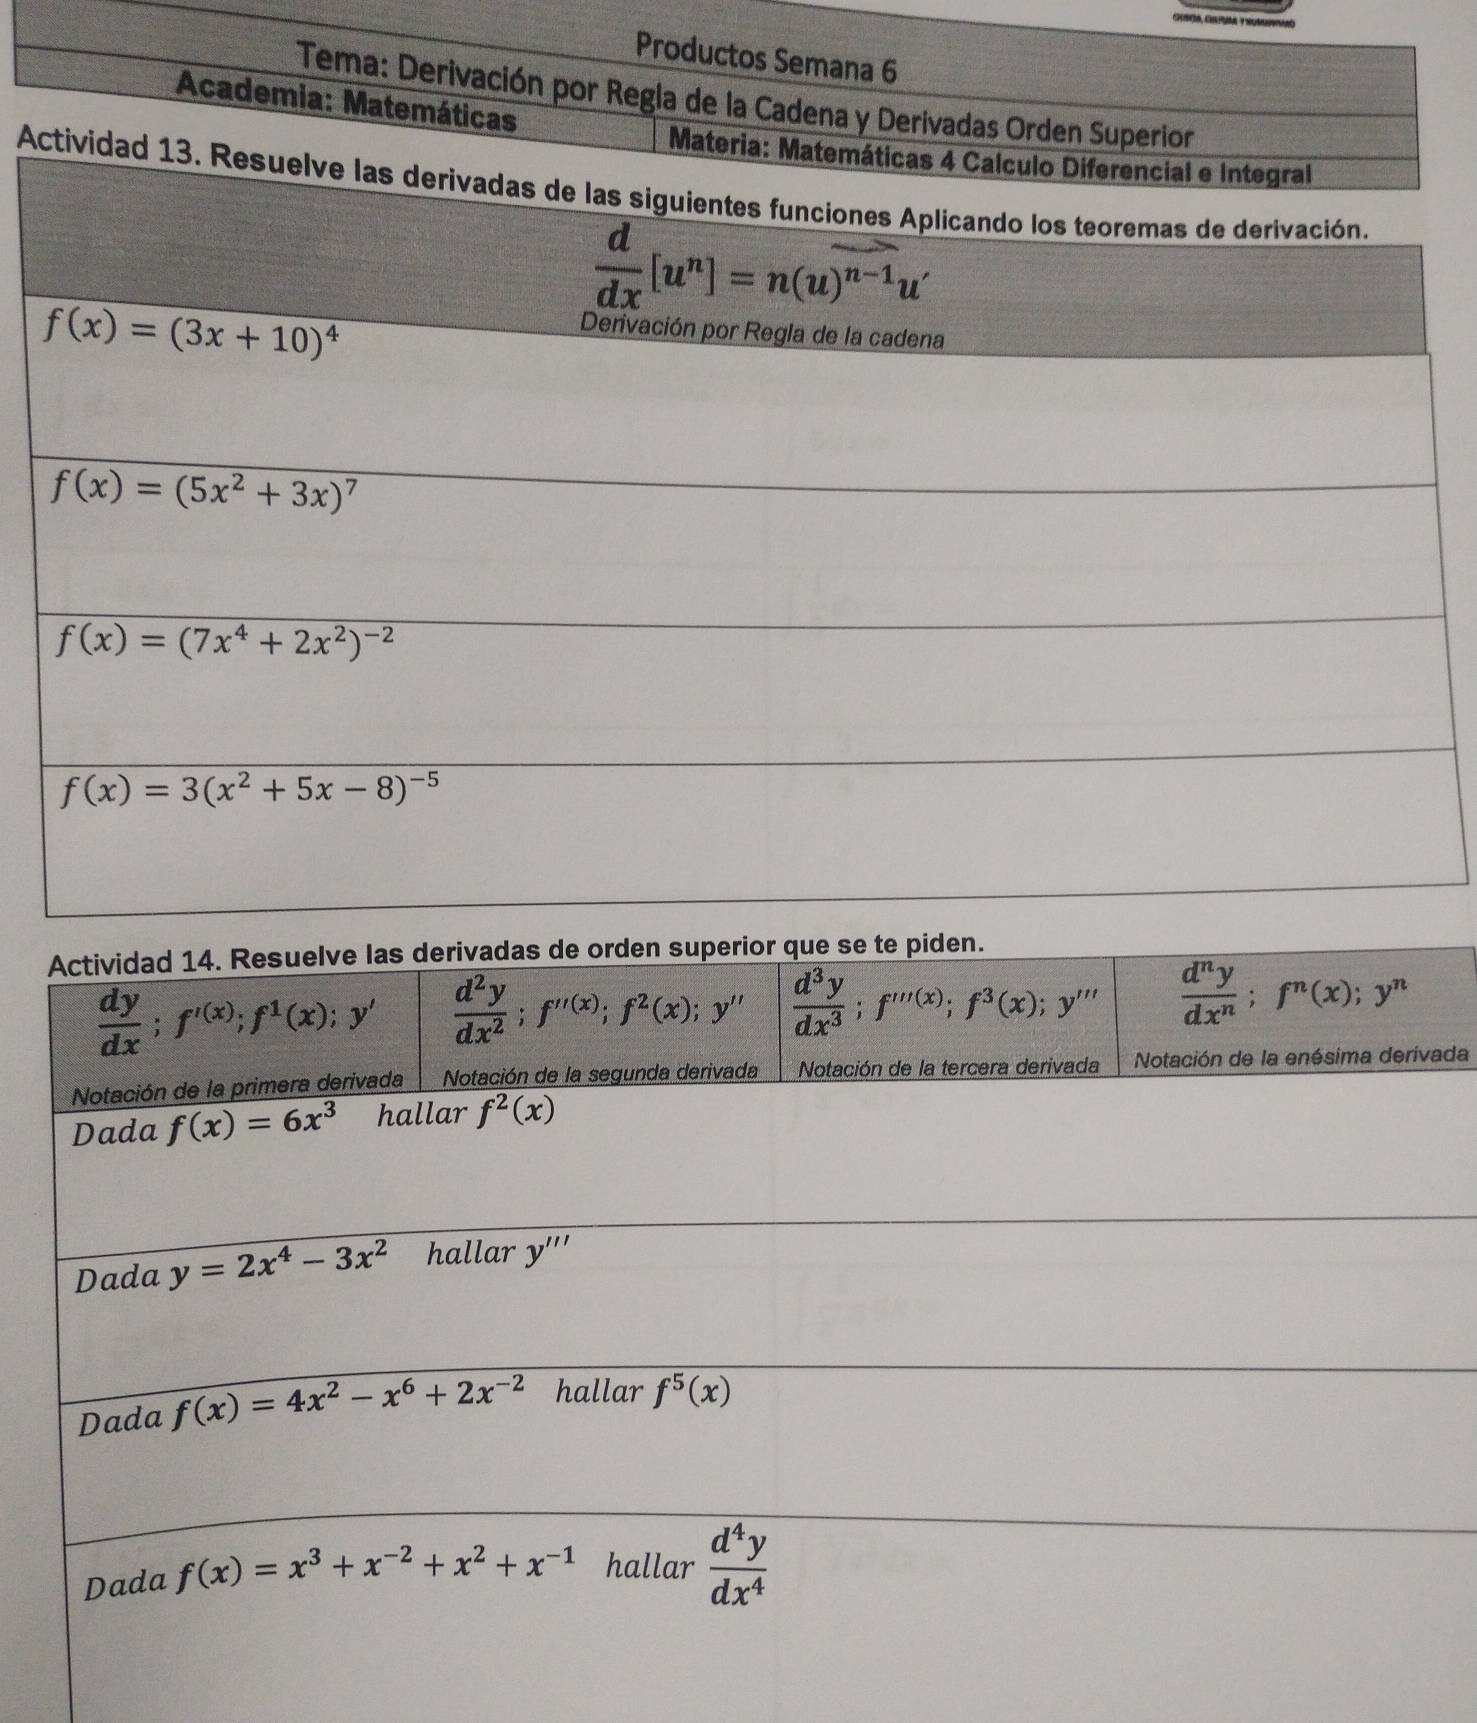 Productos Semana 6
Tema: Derivación por Regla de la Cadena y Derivadas Orden Superior
Academia: Matemáticas
Materia: Matemáticas 4 Calculo Diferencial e Integral
Actividad 13. Resuelve las derivadas de las siguientes funciones Aplicando los teoremas de derivación.
d/dx [uⁿ] = n(u)ⁿ⁻¹u′
Derivación por Regla de la cadena
f(x) = (3x + 10)⁴
f(x) = (5x² + 3x)⁷
f(x) = (7x⁴ + 2x²)⁻²
f(x) = 3(x² + 5x − 8)⁻⁵
Actividad 14. Resuelve las derivadas de orden superior que se te piden.
dy/dx ; f′⁽ˣ⁾; f¹(x); y′
Notación de la primera derivada
d²y/dx² ; f′′⁽ˣ⁾; f²(x); y′′
Notación de la segunda derivada
d³y/dx³ ; f′′′⁽ˣ⁾; f³(x); y′′′
Notación de la tercera derivada
dⁿy/dxⁿ ; fⁿ(x); yⁿ
Notación de la enésima derivada
Dada f(x) = 6x³ hallar f²(x)
Dada y = 2x⁴ − 3x² hallar y′′′
Dada f(x) = 4x² − x⁶ + 2x⁻² hallar f⁵(x)
Dada f(x) = x³ + x⁻² + x² + x⁻¹ hallar d⁴y/dx⁴